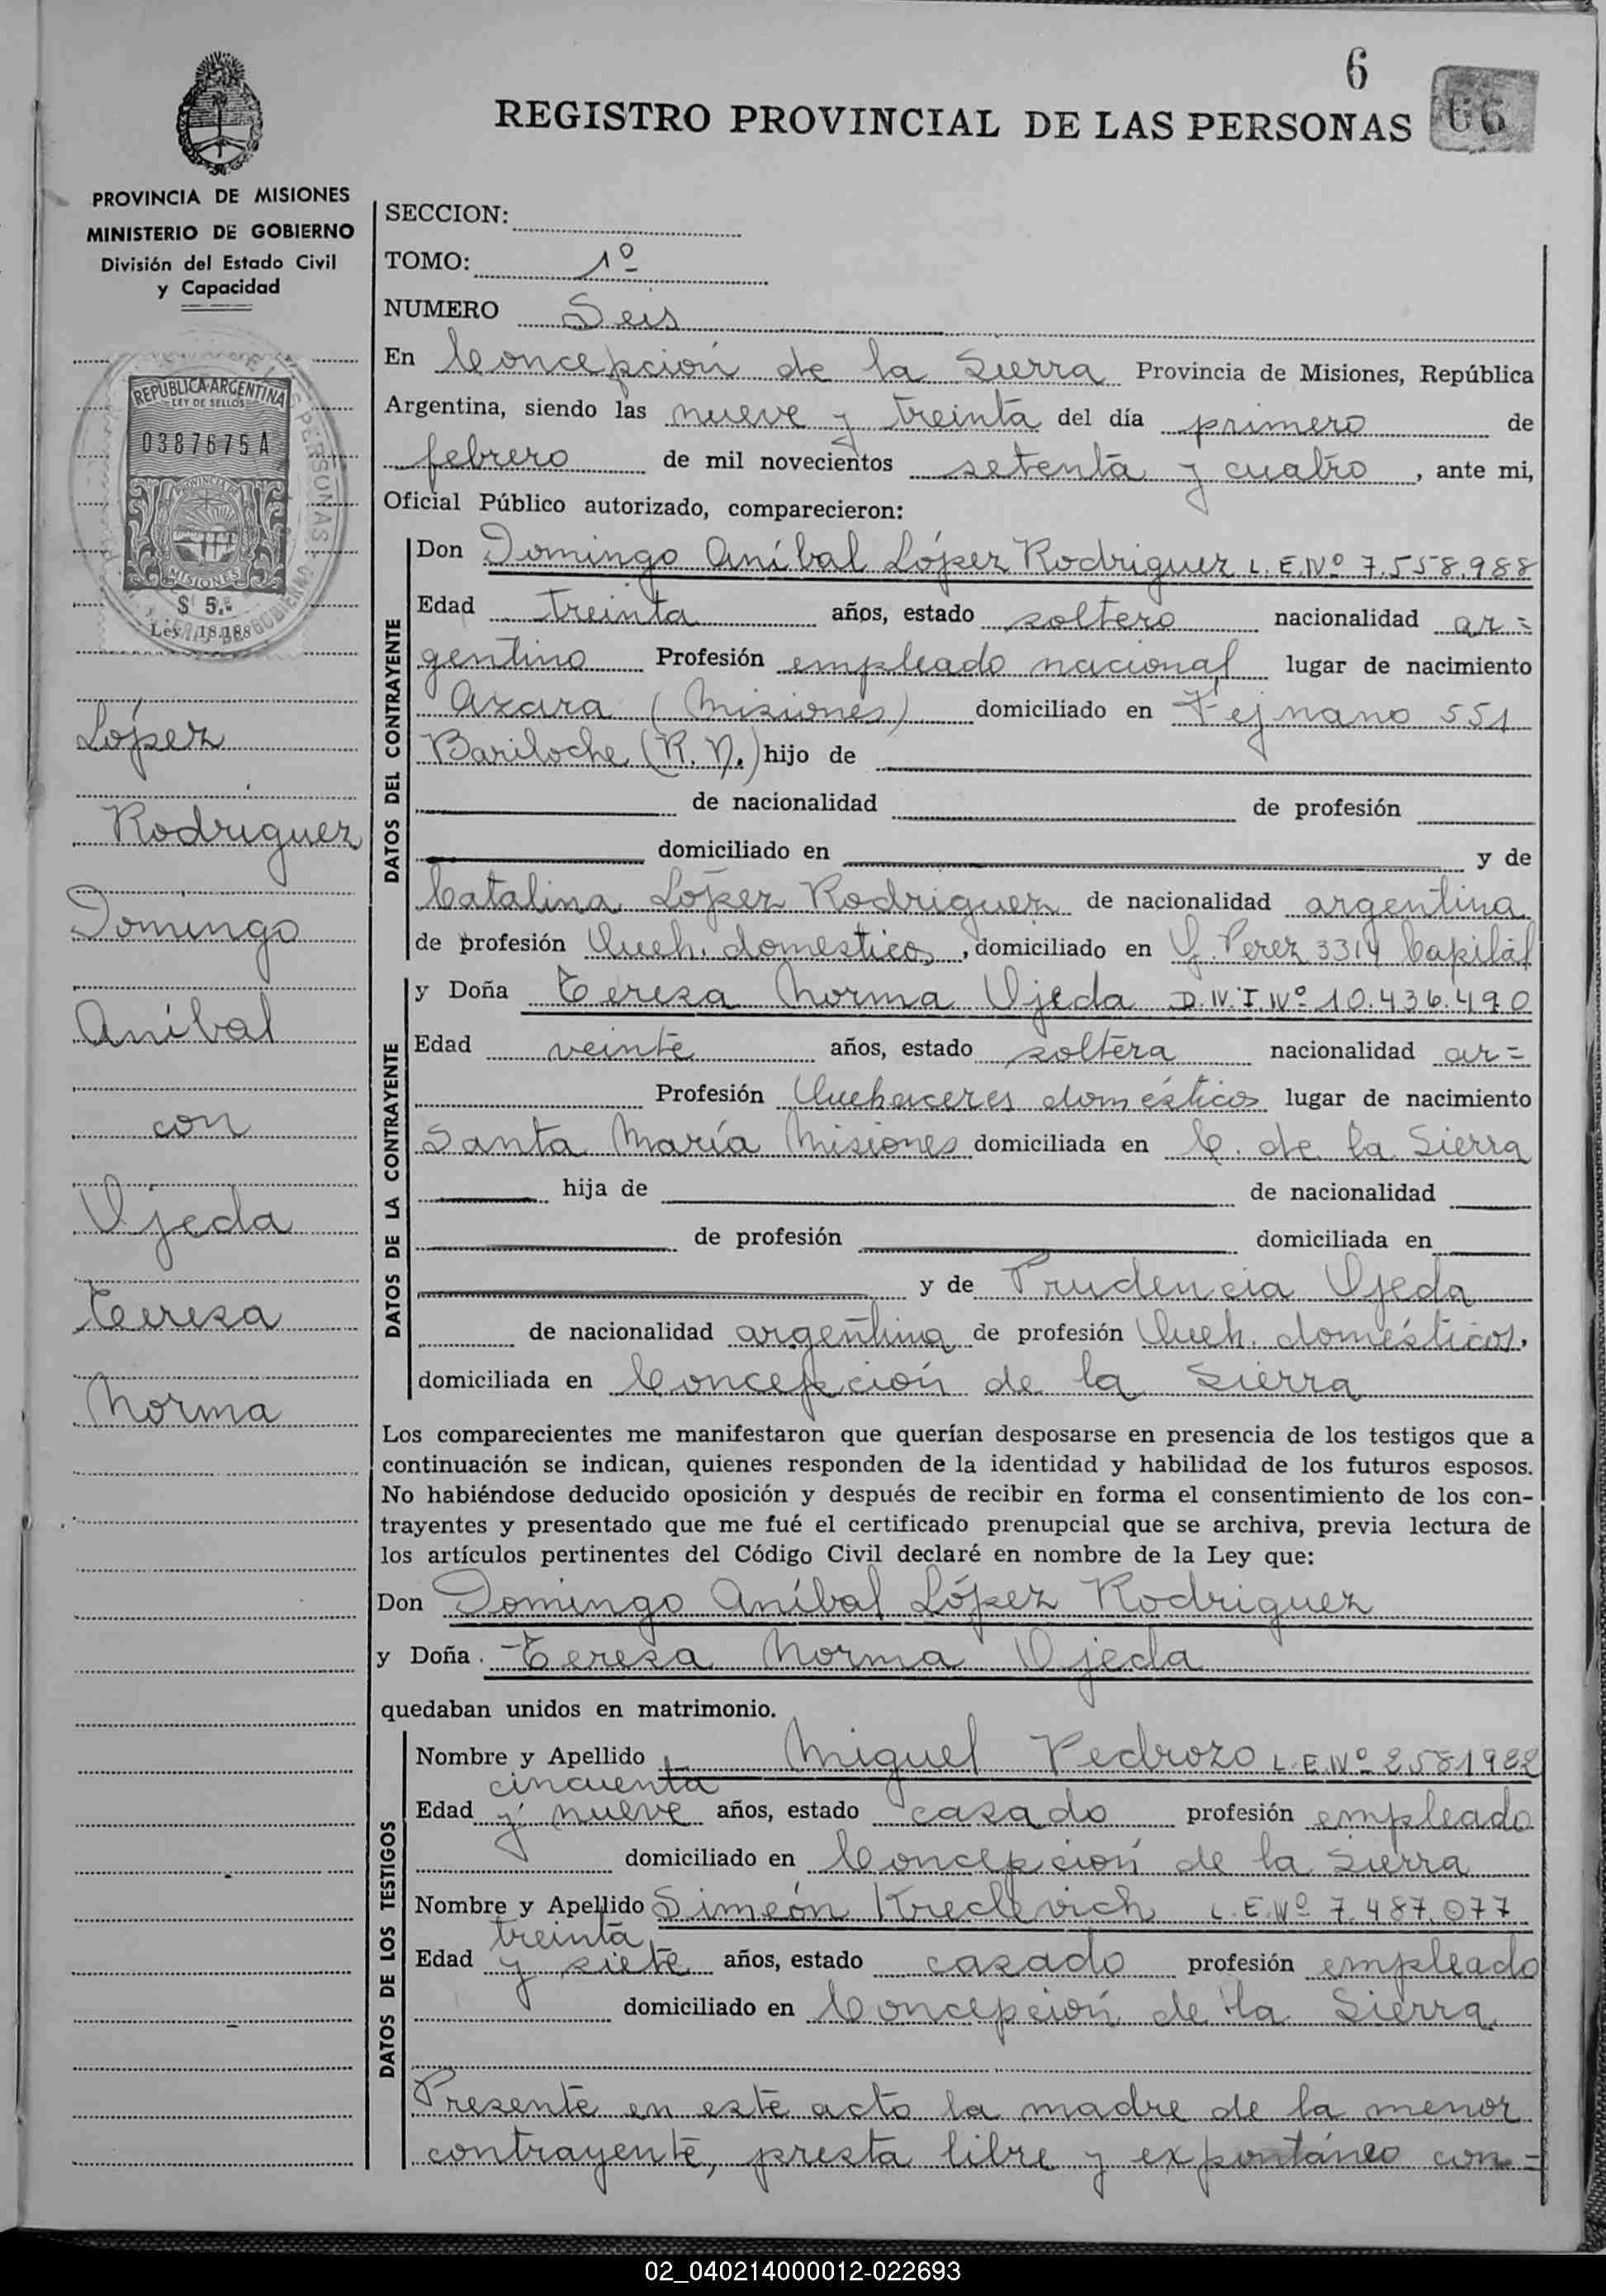 6
REGISTRO PROVINCIAL DE LAS PERSONAS
66
PROVINCIA DE MISIONES
MINISTERIO DE GOBIERNO
División del Estado Civil
y Capacidad
REPUBLICA ARGENTINA
LEY DE SELLOS
0387675 A
PROVINCIA DE
MISIONES
$ 5.-
Ley 18.188
López
Rodriguez
Domingo
Aníbal
con
Ojeda
Teresa
Norma
SECCION:
TOMO: 1º
NUMERO Seis
En Concepción de la Sierra Provincia de Misiones, República
Argentina, siendo las nueve y treinta del día primero de
febrero de mil novecientos setenta y cuatro, ante mi,
Oficial Público autorizado, comparecieron:
DATOS DEL CONTRAYENTE
Don Domingo Aníbal López Rodriguez L.E.Nº 7.558.988
Edad treinta años, estado soltero nacionalidad ar=
gentino Profesión empleado nacional lugar de nacimiento
Azara (Misiones) domiciliado en 551
Bariloche (R.N.) hijo de
de nacionalidad de profesión
domiciliado en y de
Catalina López Rodriguez de nacionalidad argentina
de profesión Queh. domesticos, domiciliado en Perez 3314 Capital
DATOS DE LA CONTRAYENTE
y Doña Teresa Norma Ojeda D.N.I.Nº 10.436.490
Edad veinte años, estado soltera nacionalidad ar=
Profesión Quehaceres domésticos lugar de nacimiento
Santa María Misiones domiciliada en C. de la Sierra
hija de de nacionalidad
de profesión domiciliada en
y de Prudencia Ojeda
de nacionalidad argentina de profesión Queh. domésticos,
domiciliada en Concepción de la Sierra
Los comparecientes me manifestaron que querían desposarse en presencia de los testigos que a
continuación se indican, quienes responden de la identidad y habilidad de los futuros esposos.
No habiéndose deducido oposición y después de recibir en forma el consentimiento de los con-
trayentes y presentado que me fué el certificado prenupcial que se archiva, previa lectura de
los artículos pertinentes del Código Civil declaré en nombre de la Ley que:
Don Domingo Aníbal López Rodriguez
y Doña Teresa Norma Ojeda
quedaban unidos en matrimonio.
DATOS DE LOS TESTIGOS
Nombre y Apellido Miguel Pedrozo L.E.Nº 2.581.922
cincuenta
Edad y nueve años, estado casado profesión empleado
domiciliado en Concepción de la Sierra
Nombre y Apellido Simeón Kreclevich L.E.Nº 7.487.077
treinta
Edad y siete años, estado casado profesión empleado
domiciliado en Concepción de la Sierra
Presente en este acto la madre de la menor
contrayente, presta libre y expontáneo con=
02_040214000012-022693